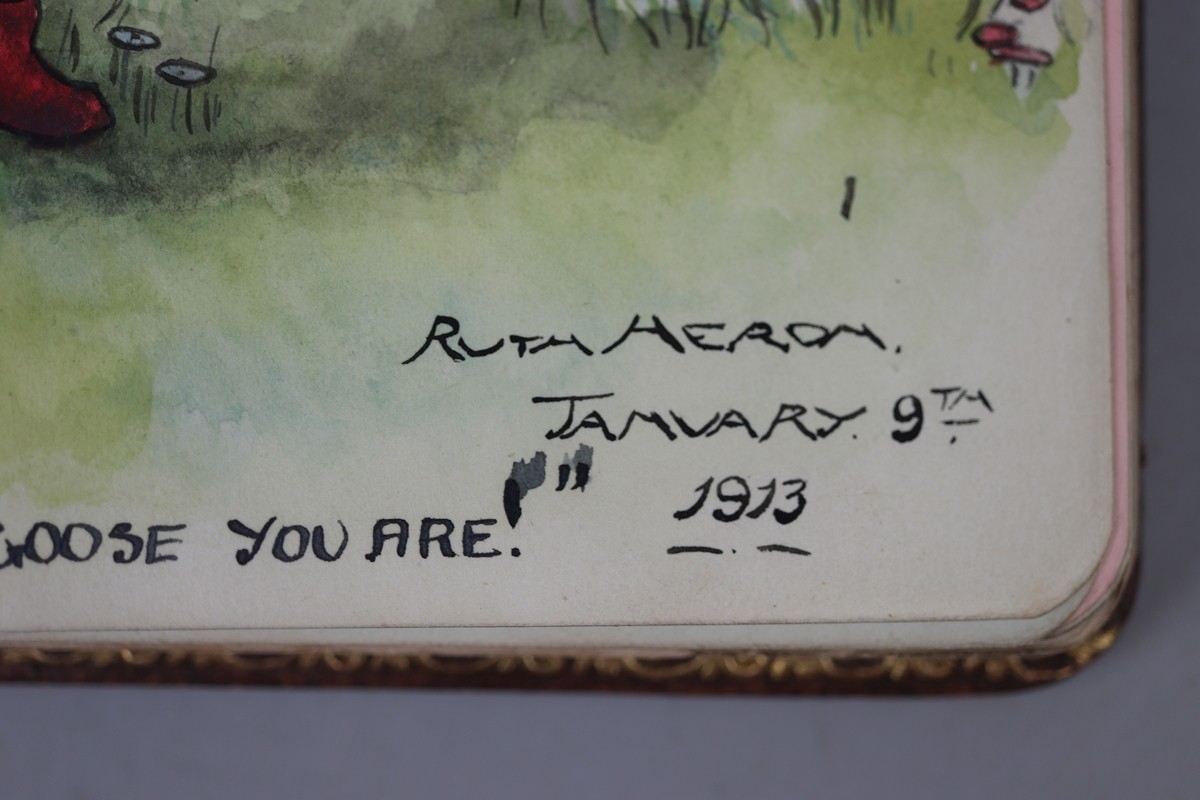 RUTH HERON.
JANVARY. 9TH
1913
GOOSE YOU ARE!"